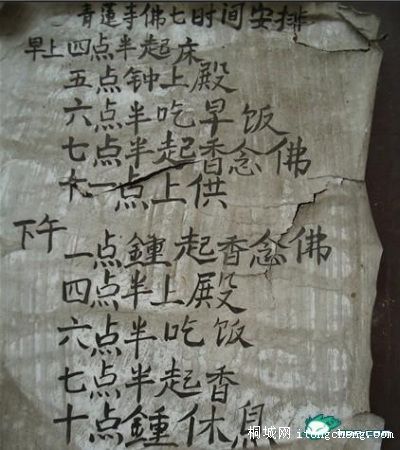 青莲寺佛七时间安排
早上四点半起床
五点钟上殿
六点半吃早饭
七点半起香念佛
十一点上供
下午
一点鍾起香念佛
四点半上殿
六点半吃饭
七点半起香
十点鍾休息
桐城网 itongcheng.com